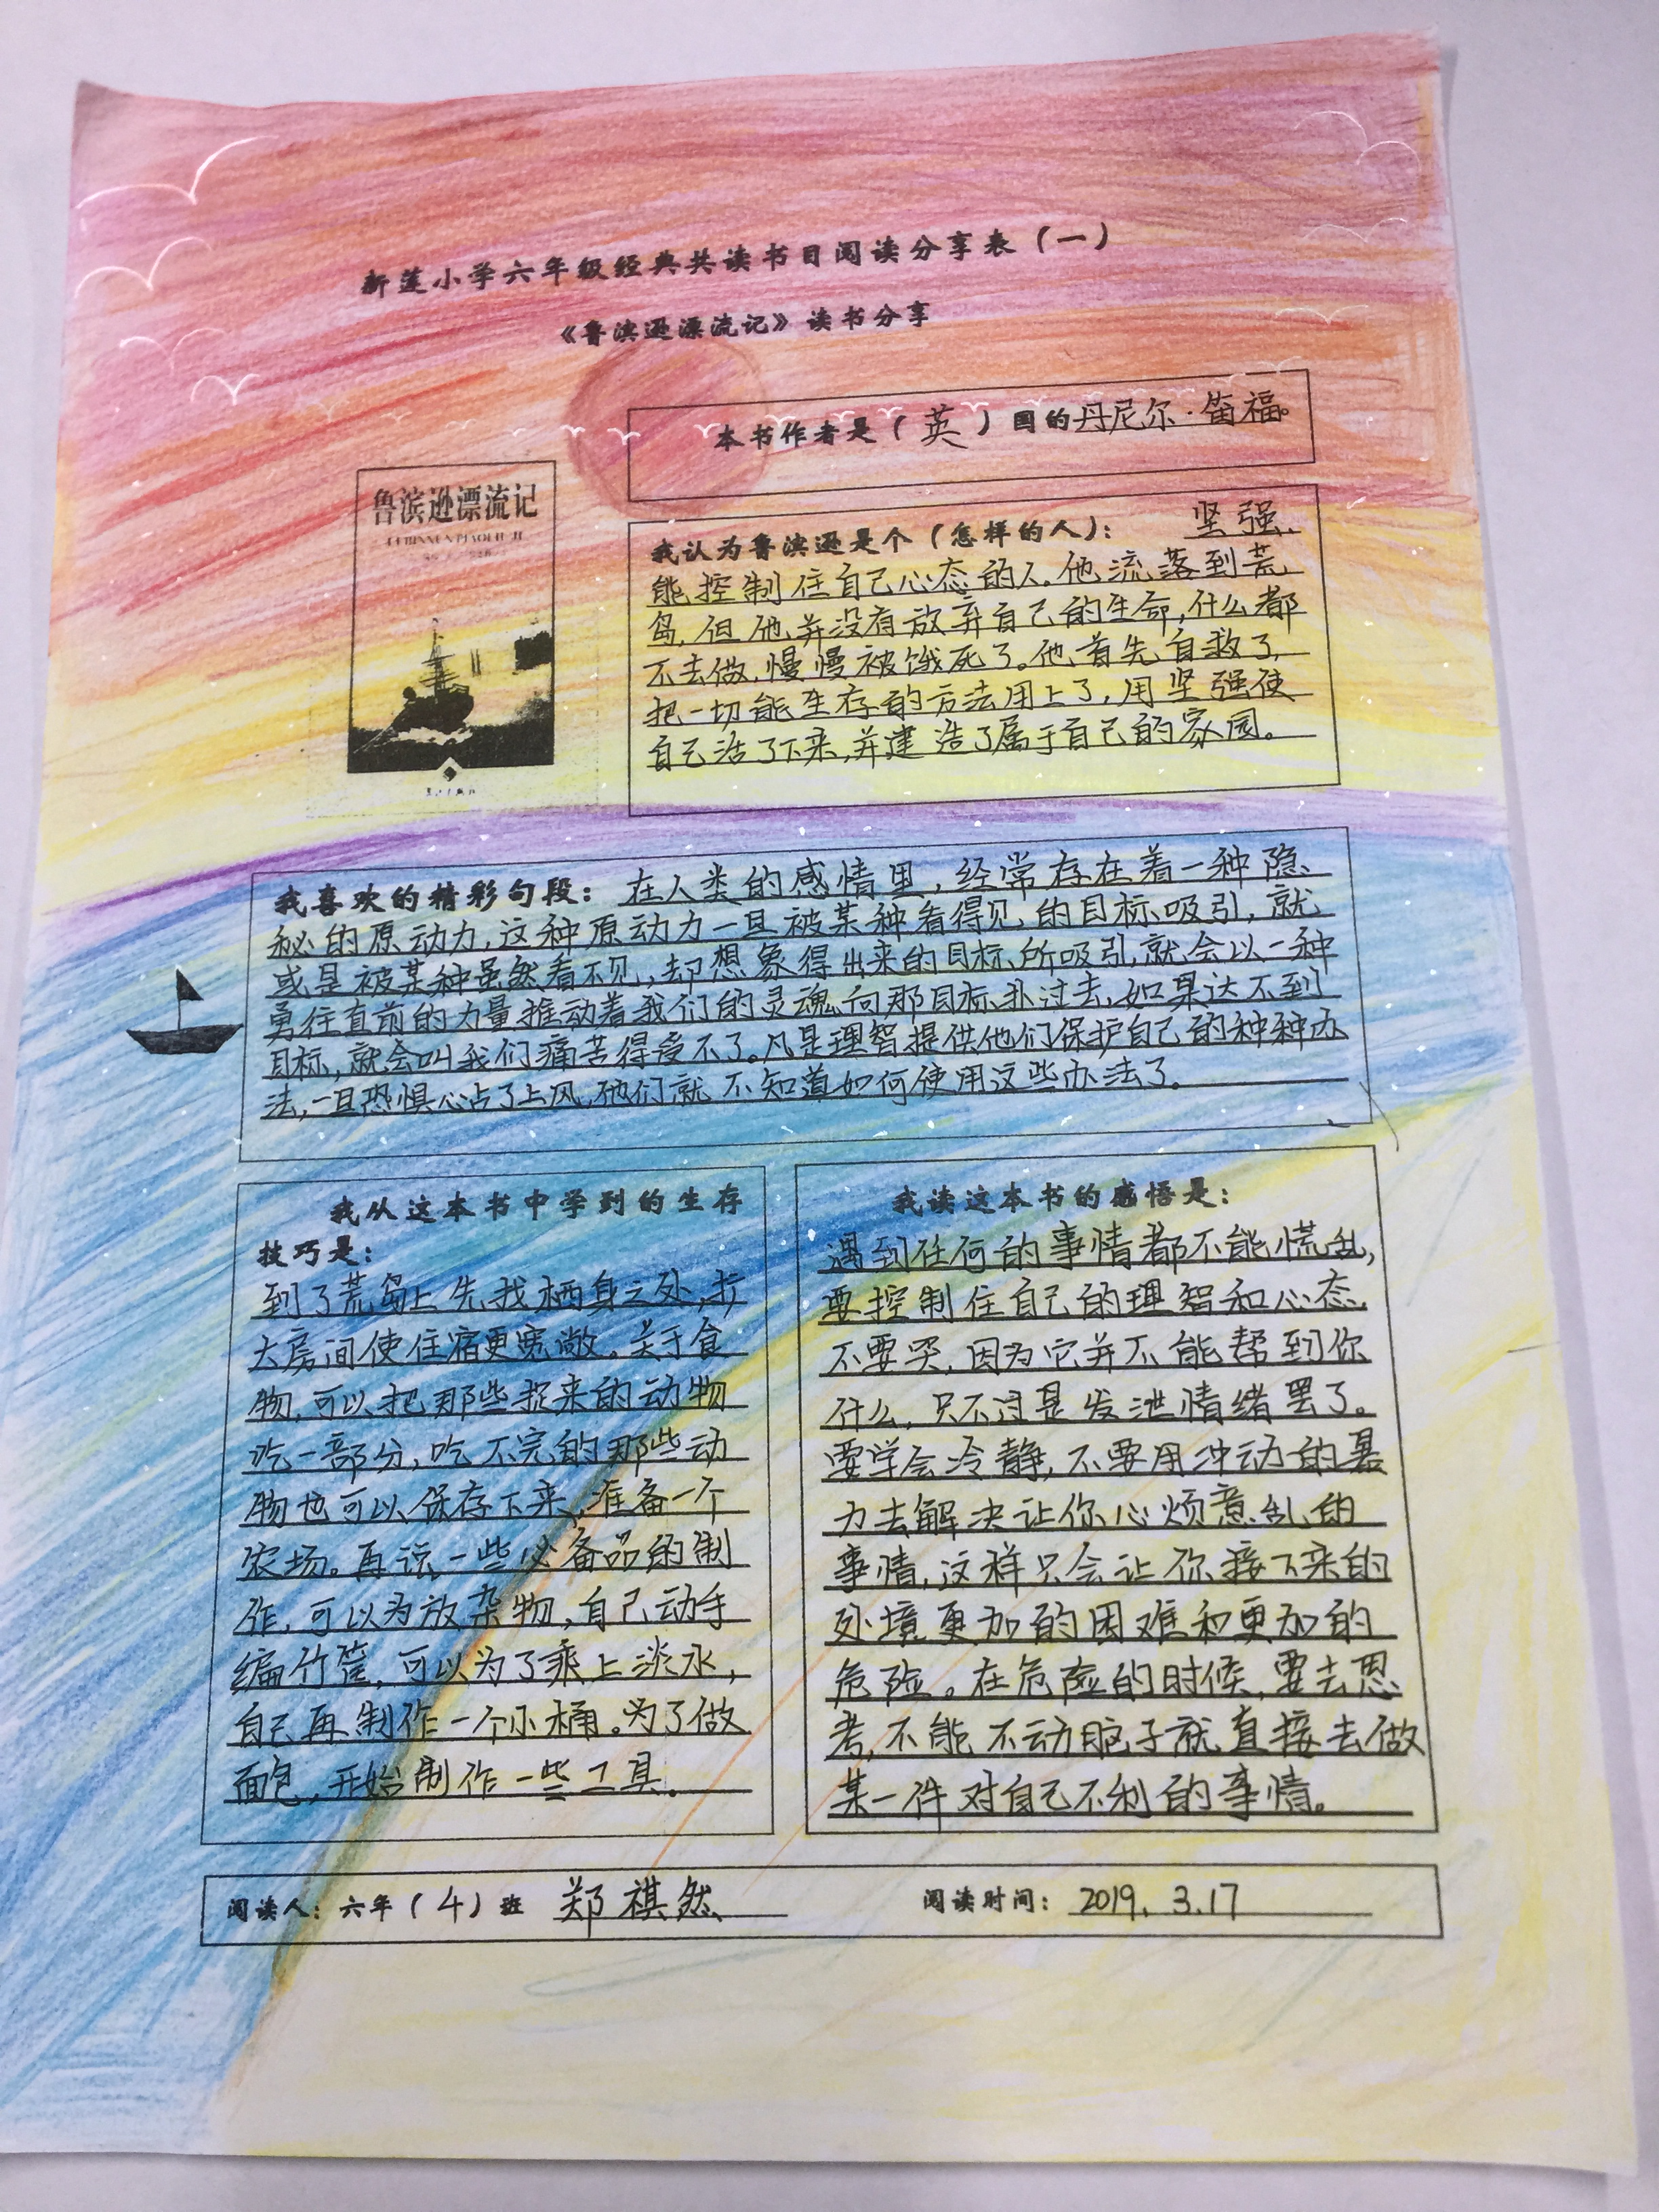 新莲小学六年级经典共读书目阅读分享表（一）
《鲁滨逊漂流记》读书分享
本书作者是（英）国的丹尼尔·笛福。
鲁滨逊漂流记
我认为鲁滨逊是个（怎样的人）：坚强、
能控制住自己心态的人。他流落到荒
岛，但他并没有放弃自己的生命，什么都
不去做，慢慢被饿死了。他首先自救了，
把一切能生存的方法用上了，用坚强使
自己活了下来，并建造了属于自己的家园。
我喜欢的精彩句段：在人类的感情里，经常存在着一种隐
秘的原动力，这种原动力一旦被某种看得见的目标吸引，就
或是被某种虽然看不见，却想象得出来的目标所吸引，就会以一种
勇往直前的力量推动着我们的灵魂向那目标扑过去，如果达不到
目标，就会叫我们痛苦得受不了。凡是理智提供他们保护自己的种种办
法，一旦恐惧心占了上风，他们就不知道如何使用这些办法了。
我从这本书中学到的生存
技巧是：
到了荒岛上先找栖身之处，扩
大房间使住宿更宽敞。关于食
物，可以把那些捉来的动物
吃一部分，吃不完的那些动
物也可以保存下来，准备一个
农场。再说一些必备品的制
作，可以为放杂物，自己动手
编竹筐，可以为了乘上淡水，
自己再制作一个小桶。为了做
面包，开始制作一些工具。
我读这本书的感悟是：
遇到任何的事情都不能慌乱，
要控制住自己的理智和心态，
不要哭，因为它并不能帮到你
什么，只不过是发泄情绪罢了。
要学会冷静，不要用冲动的暴
力去解决让你心烦意乱的
事情，这样只会让你接下来的
处境更加的困难和更加的
危险。在危险的时候，要去思
考，不能不动脑子就直接去做
某一件对自己不利的事情。
阅读人：六年（4）班 郑祺然
阅读时间：2019.3.17